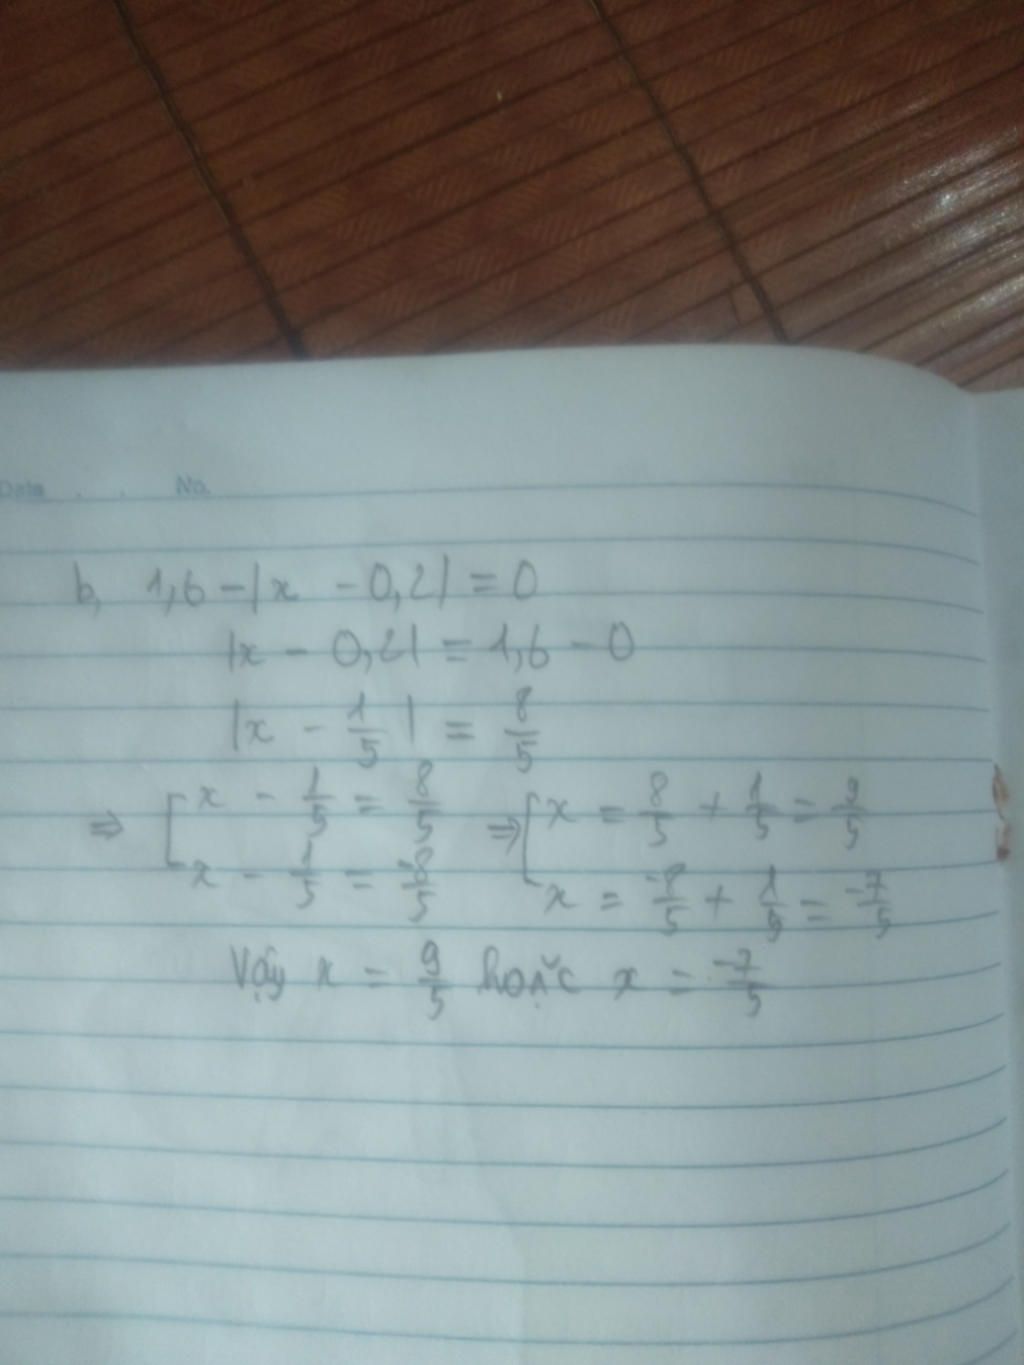 Date . . No.
b, 1,6 - |x - 0,2| = 0
|x - 0,2| = 1,6 - 0
|x - 1/5| = 8/5
⇒ [ x - 1/5 = 8/5 ⇒ [ x = 8/5 + 1/5 = 9/5
x - 1/5 = -8/5 x = -8/5 + 1/5 = -7/5
Vậy x = 9/5 hoặc x = -7/5